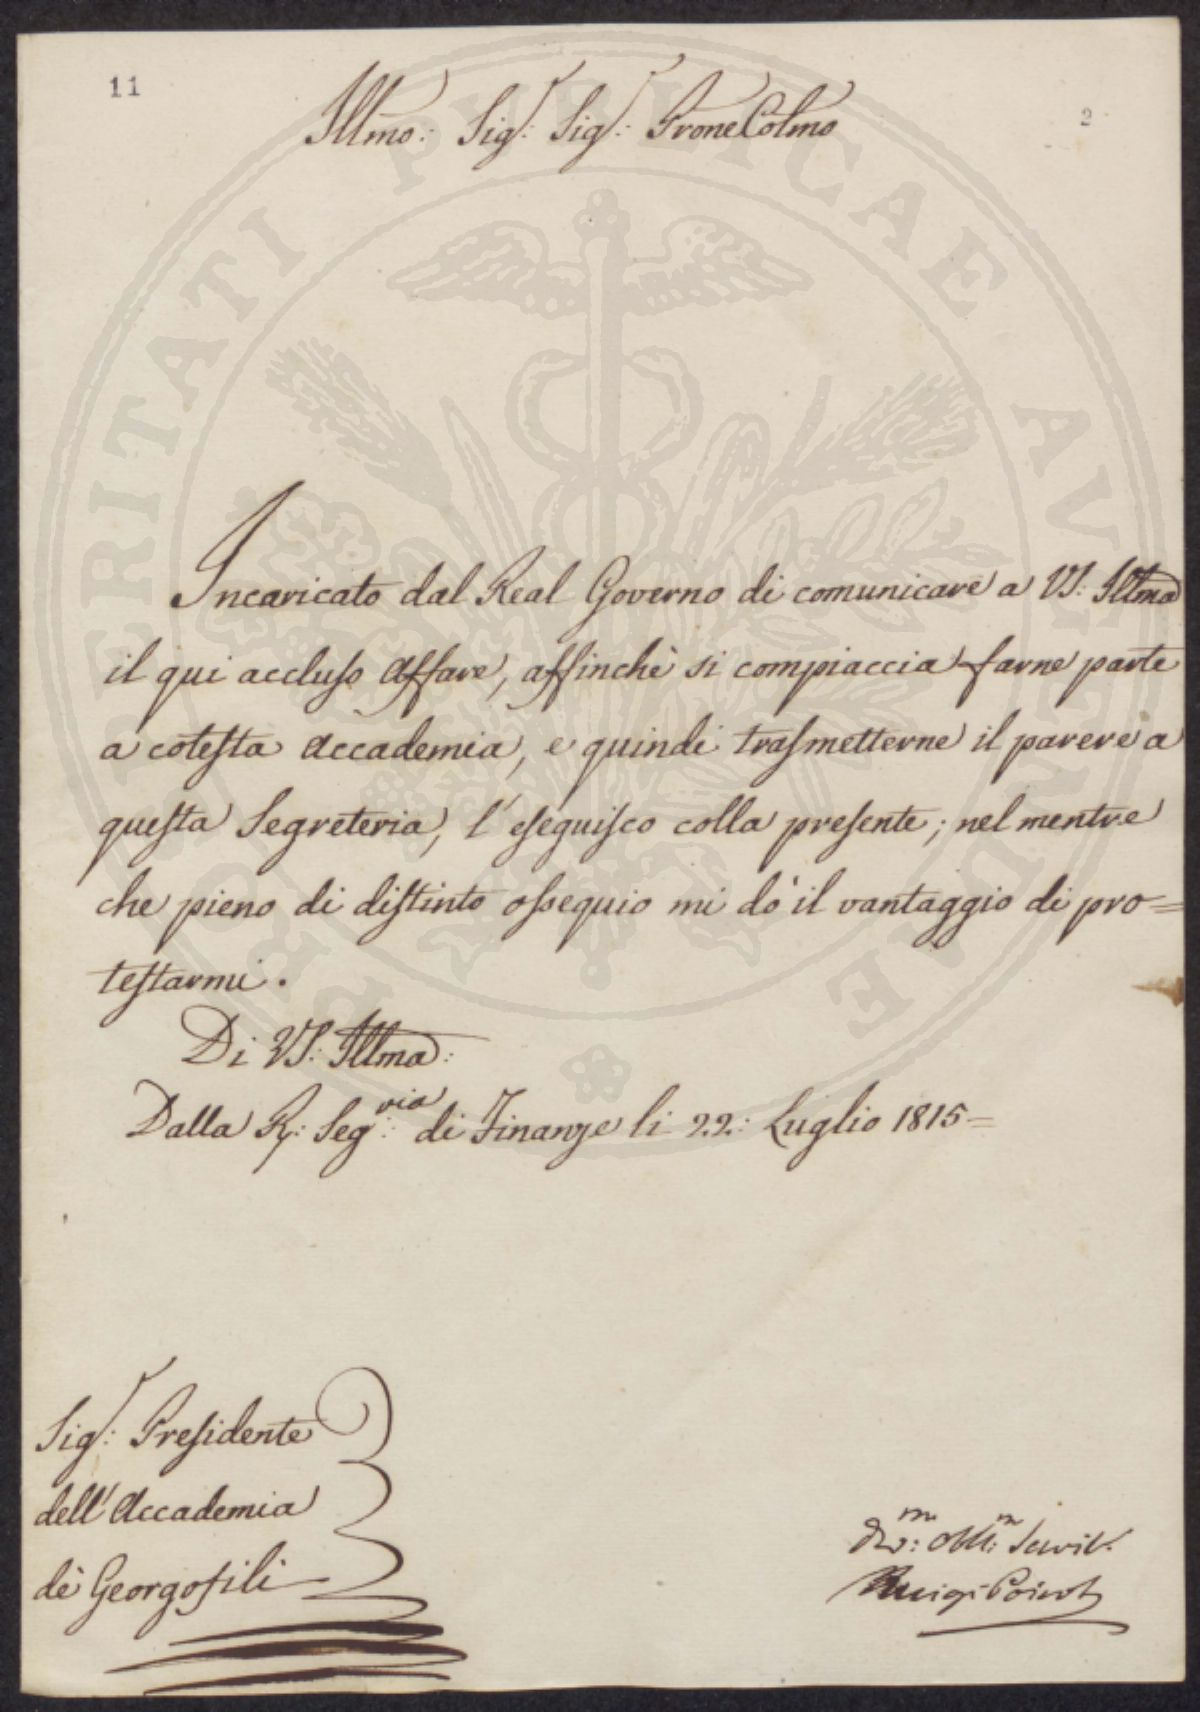 11
2
Illmo: Sig.r: Sig.r: Prone Colmo
Incaricato dal Real Governo di comunicare a VS: Illma
il qui accluso Affare, affinchè si compiaccia farne parte
a cotesta Accademia, e quindi trasmetterne il parere a
questa Segreteria, l'eseguisco colla presente; nel mentre
che pieno di distinto ossequio mi dò il vantaggio di pro=
testarmi.
Di VS: Illma:
Dalla R: Seg:ria di Finanze li 22: Luglio 1815=
Sig.r: Presidente
dell'Accademia
de Georgofili
Dev:mo Obb:mo Servit.
Luigi Poirot
PROSPERITATI PUBLICAE AUGENDAE